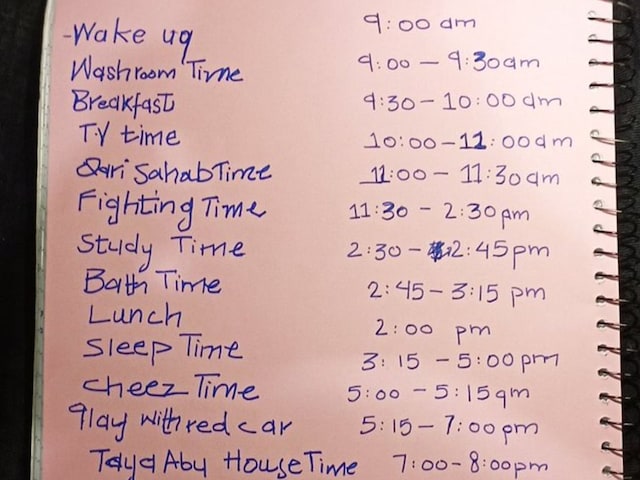 -Wake up 9:00 am
Washroom Time 9:00 - 9:30am
Breakfast 9:30 - 10:00 am
TV time 10:00 - 11:00am
Qari Sahab Time 11:00 - 11:30am
Fighting Time 11:30 - 2:30pm
Study Time 2:30 - 2:45pm
Bath Time 2:45 - 3:15 pm
Lunch 2:00 pm
Sleep Time 3:15 - 5:00pm
Cheez Time 5:00 - 5:15am
Play with red car 5:15 - 7:00pm
Taya Abu House Time 7:00-8:00pm